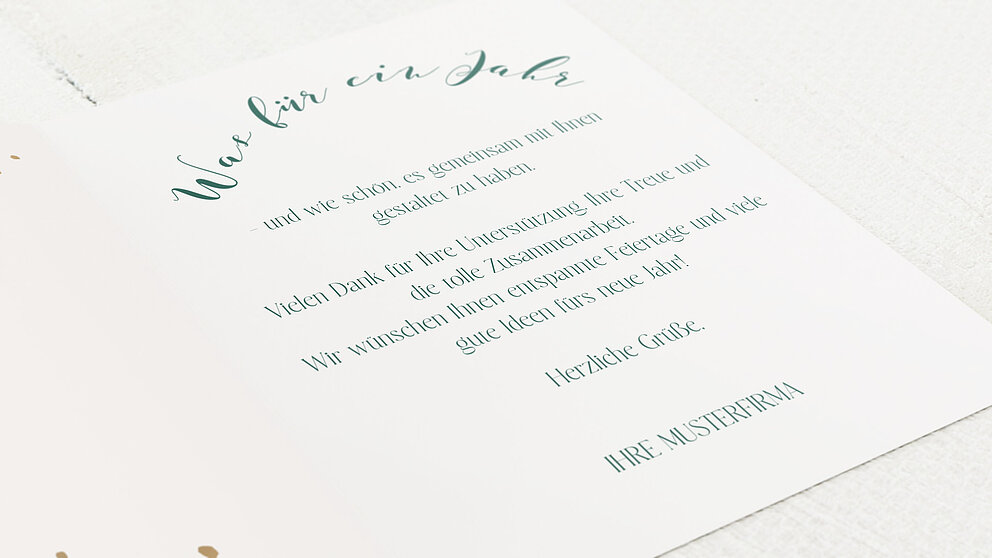 Was für ein Jahr
- und wie schön, es gemeinsam mit Ihnen
gestaltet zu haben.
Vielen Dank für Ihre Unterstützung, Ihre Treue und
die tolle Zusammenarbeit.
Wir wünschen Ihnen entspannte Feiertage und viele
gute Ideen fürs neue Jahr!
Herzliche Grüße,
IHRE MUSTERFIRMA